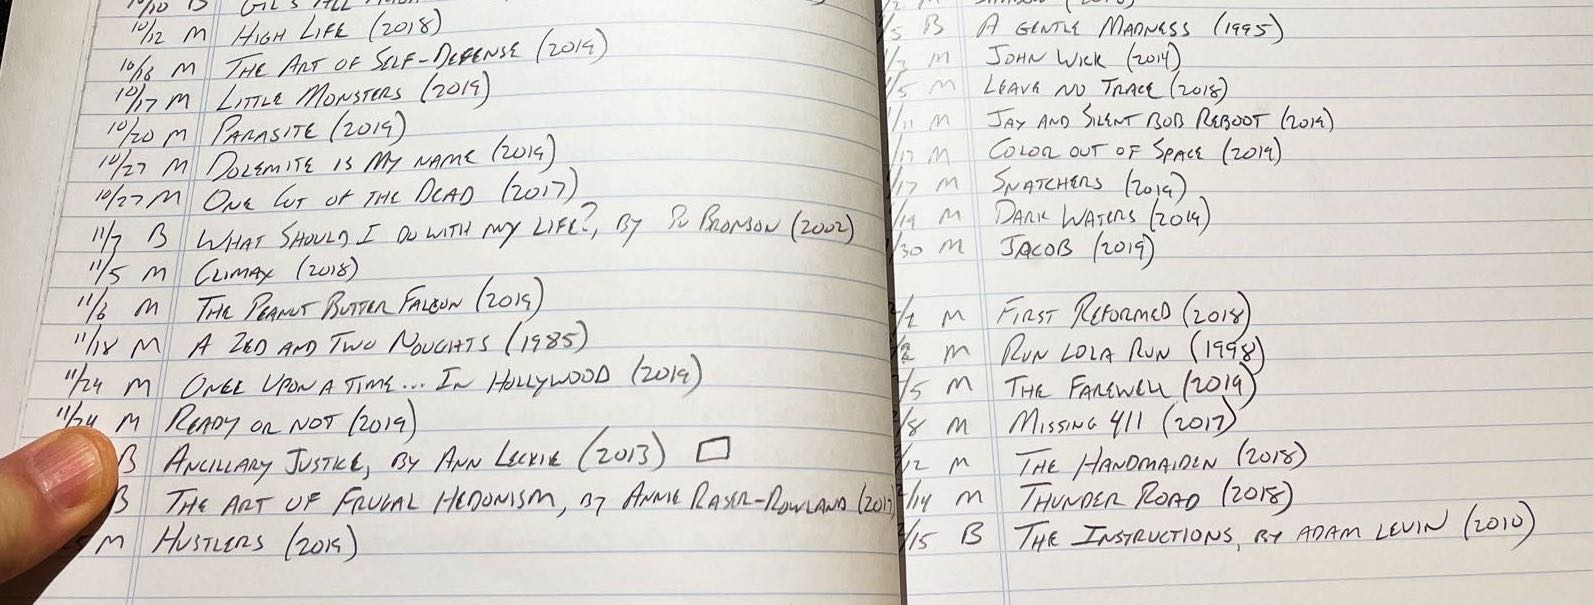 10/10 B GIL'S ALL
10/12 M HIGH LIFE (2018)
10/16 M THE ART OF SELF-DEFENSE (2019)
10/17 M LITTLE MONSTERS (2019)
10/20 M PARASITE (2019)
10/27 M DOLEMITE IS MY NAME (2019)
10/27 M ONE CUT OF THE DEAD (2017)
11/7 B WHAT SHOULD I DO WITH MY LIFE?, BY PO BRONSON (2002)
11/5 M CLIMAX (2018)
11/6 M THE PEANUT BUTTER FALCON (2019)
11/18 M A ZED AND TWO NOUGHTS (1985)
11/24 M ONCE UPON A TIME... IN HOLLYWOOD (2019)
11/24 M READY OR NOT (2019)
B ANCILLARY JUSTICE, BY ANN LECKIE (2013)
B THE ART OF FRUGAL HEDONISM, BY ANNIE RASER-ROWLAND (2017)
M HUSTLERS (2019)
/5 B A GENTLE MADNESS (1995)
/3 M JOHN WICK (2014)
/5 M LEAVE NO TRACE (2018)
/11 M JAY AND SILENT BOB REBOOT (2019)
/17 M COLOR OUT OF SPACE (2019)
/17 M SNATCHERS (2019)
/19 M DARK WATERS (2019)
/30 M JACOB (2019)
/1 M FIRST REFORMED (2018)
/2 M RUN LOLA RUN (1998)
/5 M THE FAREWELL (2019)
/8 M MISSING 411 (2017)
/12 M THE HANDMAIDEN (2018)
/14 M THUNDER ROAD (2018)
/15 B THE INSTRUCTIONS, BY ADAM LEVIN (2010)